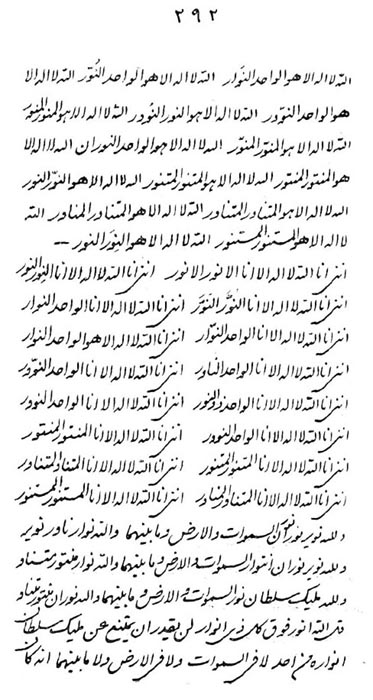 ٢٩٢
الله لا اله الا هو الواحد النوار الله لا اله الا هو الواحد النُوّر الله لا اله الا
هو الواحد النوّور الله لا اله الا هو النور النوور الله لا اله الا هو المنور المنور
الله لا اله الا هو المنوّر المنوّر الله لا اله الا هو الواحد النوران الله لا اله الا
هو المنتور المنتور الله لا اله الا هو المتنور المتنور الله لا اله الا هو النوّر النور
الله لا اله الا هو المتناور المتناور الله لا اله الا هو المتناور المتناور الله
لا اله الا هو المستنور المستنور الله لا اله الا هو النِوَر النور
اننى انا الله لا اله الا انا الانور الانور اننى انا الله لا اله الا انا النور النور
اننى انا الله لا اله الا انا النُوَّر النَوَّر اننى انا الله لا اله الا انا الواحد النوار
اننى انا الله لا اله الا انا الواحد النوّار اننى انا الله لا اله الا هو الواحد النوار
اننى انا الله لا اله الا انا الواحد الناور اننى انا الله لا اله الا انا الواحد النوّور
اننى انا الله لا اله الا انا الواحد اننى انا الله لا اله الا انا الواحد النوور
اننى انا الله لا اله الا انا الواحد النوور اننى انا الله لا اله الا انا المنتور المنتور
اننى انا الله لا اله الا انا المتنور المتنور اننى انا الله لا اله الا انا المتناور المتناور
اننى انا الله لا اله الا انا المتناور المتناور اننى انا الله لا اله الا انا المستنور المستنور
ولله نوير نوران السموات والارض وما بينهما والله نوار ناور نوير
ولله نوير نوران السموات والارض وما بينهما والله نوار منتور متناور
ولله مليك سلطان نور السموات والارض وما بينهما والله نوران منتور متناور
قل الله انور فوق كل ذى انوار لن يقدر ان يمتنع عن مليك سلطان
انواره من احد لا فى السموات ولا فى الارض ولا ما بينهما انه كان